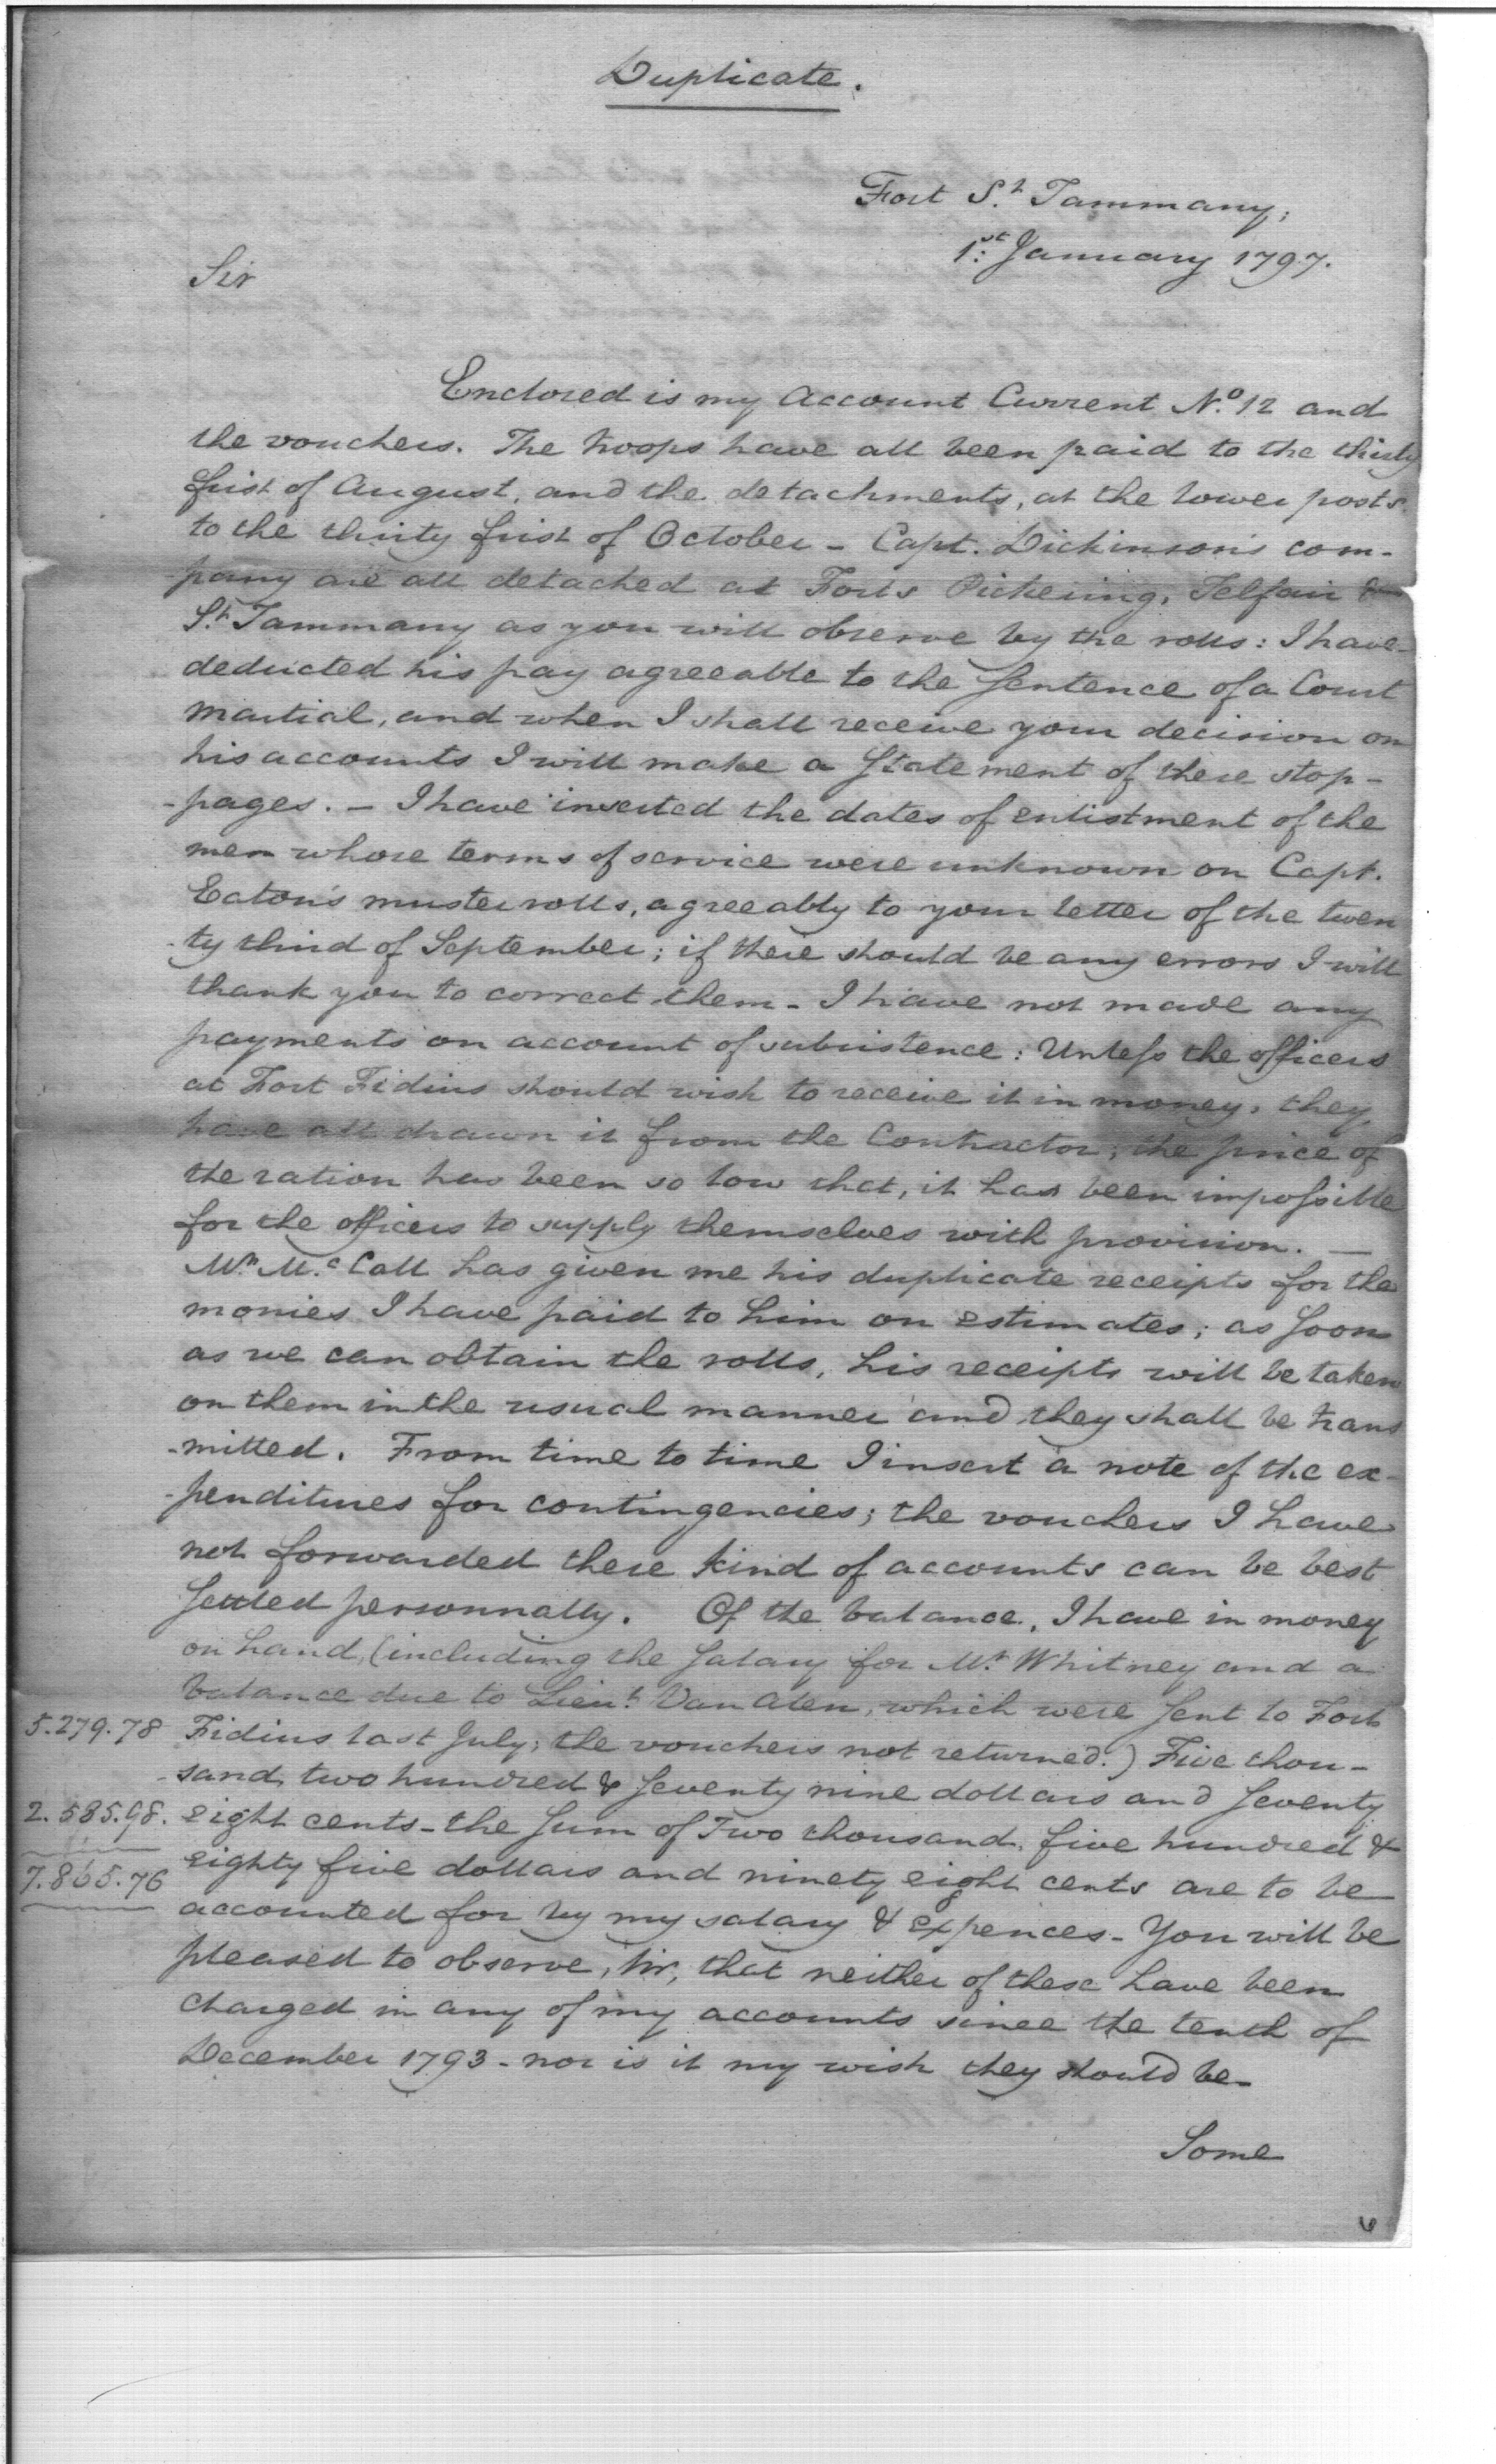 Duplicate.
Fort St. Tammany,
1st. January 1797.
Sir
Enclosed is my Account Current No. 12 and
the vouchers. The troops have all been paid to the thirty
first of August, and the detachments, at the lower posts
to the thirty first of October - Capt. Dickinson's com-
pany are all detached at Forts Pickering, Telfair &
St. Tammany as you will observe by the rolls: I have
deducted his pay agreeable to the sentence of a Court
Martial, and when I shall receive your decision on
his accounts I will make a statement of these stop-
-pages. - I have inserted the dates of enlistment of the
men whose terms of service were unknown on Capt.
Eaton's muster rolls, agreeably to your letter of the twen
-ty third of September; if there should be any errors I will
thank you to correct them - I have not made any
payments on account of subsistence: Unless the officers
at Fort Fidius should wish to receive it in money, they
have all drawn it from the Contractor; the price of
the ration has been so low that, it has been impossible
for the officers to supply themselves with provision. -
Mr. McCall has given me his duplicate receipts for the
monies I have paid to him on estimates; as soon
as we can obtain the rolls, his receipts will be taken
on them in the usual manner and they shall be trans
-mitted. From time to time I insert a note of the ex-
-penditures for contingencies; the vouchers I have
not forwarded these kind of accounts can be best
settled personnally. Of the balance, I have in money
on hand, (including the salary for Mr. Whitney and a
balance due to Lieut. Van Alen, which were sent to Fort
5.279.78 Fidius last July; the vouchers not returned.) Five thou-
-sand, two hundred & seventy nine dollars and seventy
2.585.98. eight cents - the sum of Two thousand, five hundred &
7.865.76 eighty five dollars and ninety eight cents are to be
accounted for by my salary & expences - You will be
pleased to observe, sir, that neither of these have been
charged in any of my accounts since the tenth of
December 1793 - nor is it my wish they should be -
Some
6